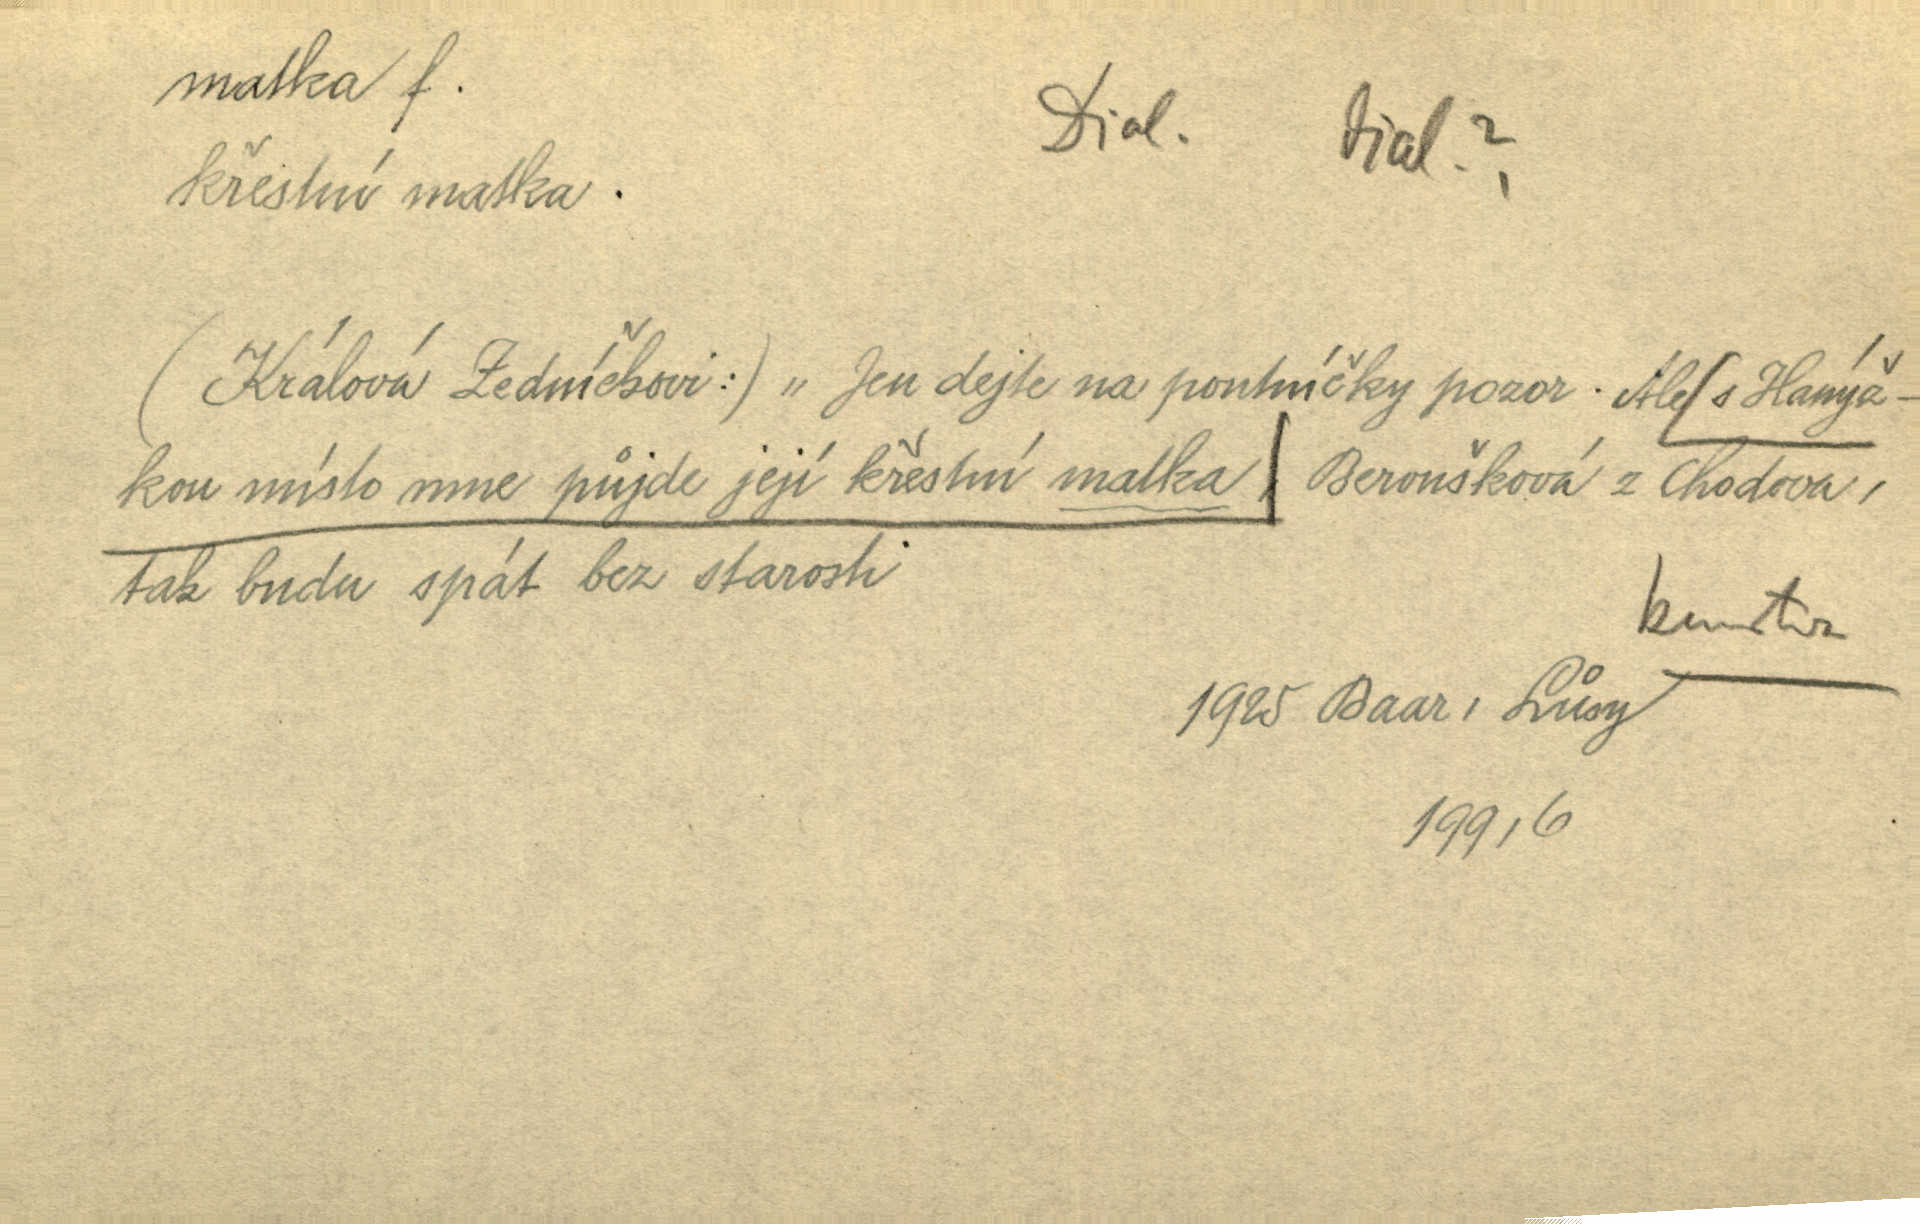 matka f.
Dial. Dial.?
křestní matka.
(Králová Zedníčkovi:) „Jen dejte na poutníčky pozor. Ale s Hanýž-
kou místo mne půjde její křestní matka, Beroušková z Chodova,
tak budu spát bez starosti
1925 Baar, Lůsy
199,6